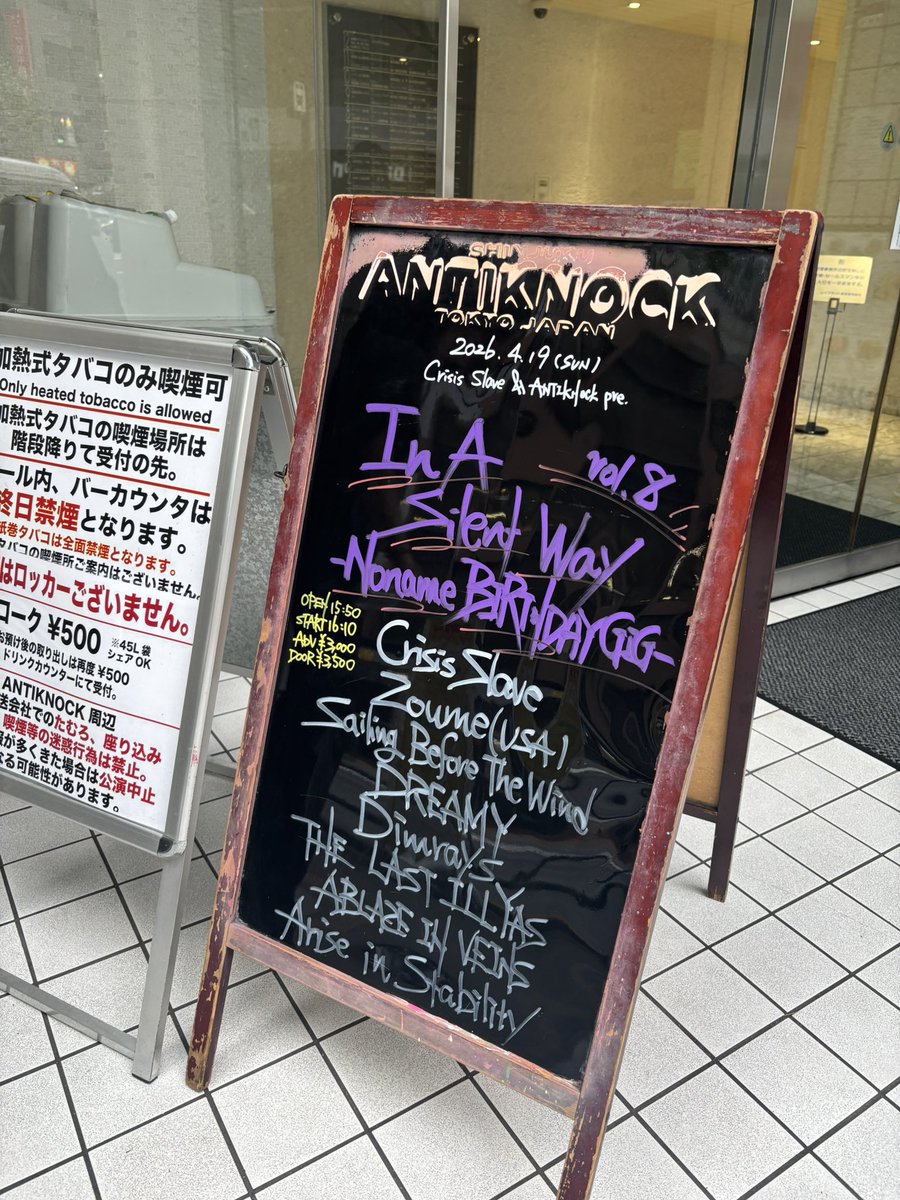 加熱式タバコのみ喫煙可
Only heated tobacco is allowed
加熱式タバコの喫煙場所は
階段降りて受付の先。
ール内、バーカウンタは
終日禁煙となります。
紙巻タバコは全面禁煙となります。
タバコの喫煙所ご案内はございません。
はロッカーございません。
ローク ¥500 ※45L 袋
シェア OK
お預け後の取り出しは再度 ¥500
ドリンクカウンターにて受付。
ANTIKNOCK 周辺
送会社でのたむろ、座り込み
喫煙等の迷惑行為は禁止。
が多くきた場合は公演中止
なる可能性があります。
SHINJUKU
ANTIKNOCK
TOKYO JAPAN
2026.4.19(SUN)
Crisis Slave & ANTIKNOCK pre.
In A
vol.8
Silent Way
-Noname BIRthDAY GIG-
OPEN 15:50
START 16:10
ADV ¥3,000
DOOR ¥3,500
Crisis Slave
Zoume(USA)
Sailing Before The Wind
DREAMY
Dimrays
THE LAST ILLYAS
ABLAZE IN VEINS
Arise in Stability